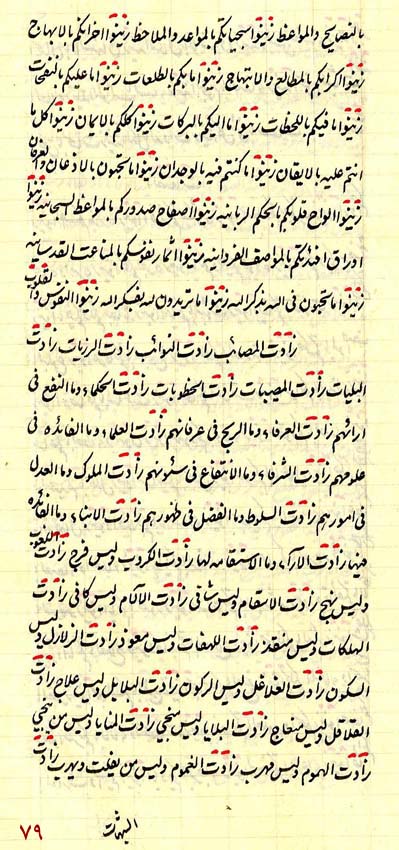 بالنصایح والمواعظ زینوا سجیاتکم بالمواعد والملاحظ زینوا اخزانکم بالابهاج
زینوا اکرابکم بالمطالع والابتهاج زینوا مابکم بالطلعات زینوا ما علیکم بالنفحات
زینوا ما فیکم باللحظات زینوا ما الیکم بالبرکات زینوا کلکم بالایمان زینوا کل ما
انتم علیه بالایقان زینوا ما کنتم فیه بالوجدان زینوا ما تحبون بالاذعان والعرفان
زینوا الواح قلوبکم بالحکم الربانیه زینوا صفاح صدورکم بالمواعظ السبحانیه زینوا
اوراق افئدتکم بالمواصف الفردانیه زینوا اثمار نفوسکم بالمناعت القدسانیه
زینوا ما تحبون فی الله بذکر الله زینوا ما تریدون لله بفکر الله زینوا النفوس والقلوب
زادت المصائب زادت النوائب زادت الرزیات زادت
البلیات زادت المصیبات زادت الخطوبات زادت الحکماء وما النفع فی
ارائهم زادت العرفاء وما الربح فی عرفانهم زادت العلماء وما الفائده فی
علومهم زادت الشرفاء وما الانتفاع فی شئونهم زادت الملوک وما العدل
فی امورهم زادت السلوط وما الفضل فی ظهورهم زادت الابناء وما الفائده
فیها زادت الآراء وما الاستقامه لها زادت الکروب ولیس فرج زادت اللغوب
ولیس نهج زادت الاسقام ولیس شافی زادت الآلام ولیس کافی زادت
الهلکات ولیس منقذ زادت اللهفات ولیس معوذ زادت الزلازل ولیس
السکون زادت الغلاغل ولیس الرکون زادت البلابل ولیس علاج زادت
القلاقل ولیس منعاج زادت البلایا ولیس منجی زادت المنایا ولیس من ینجی
زادت الهموم ولیس مهرب زادت الغموم ولیس من یفلت ویهرب زادت
البهتات
۷۹